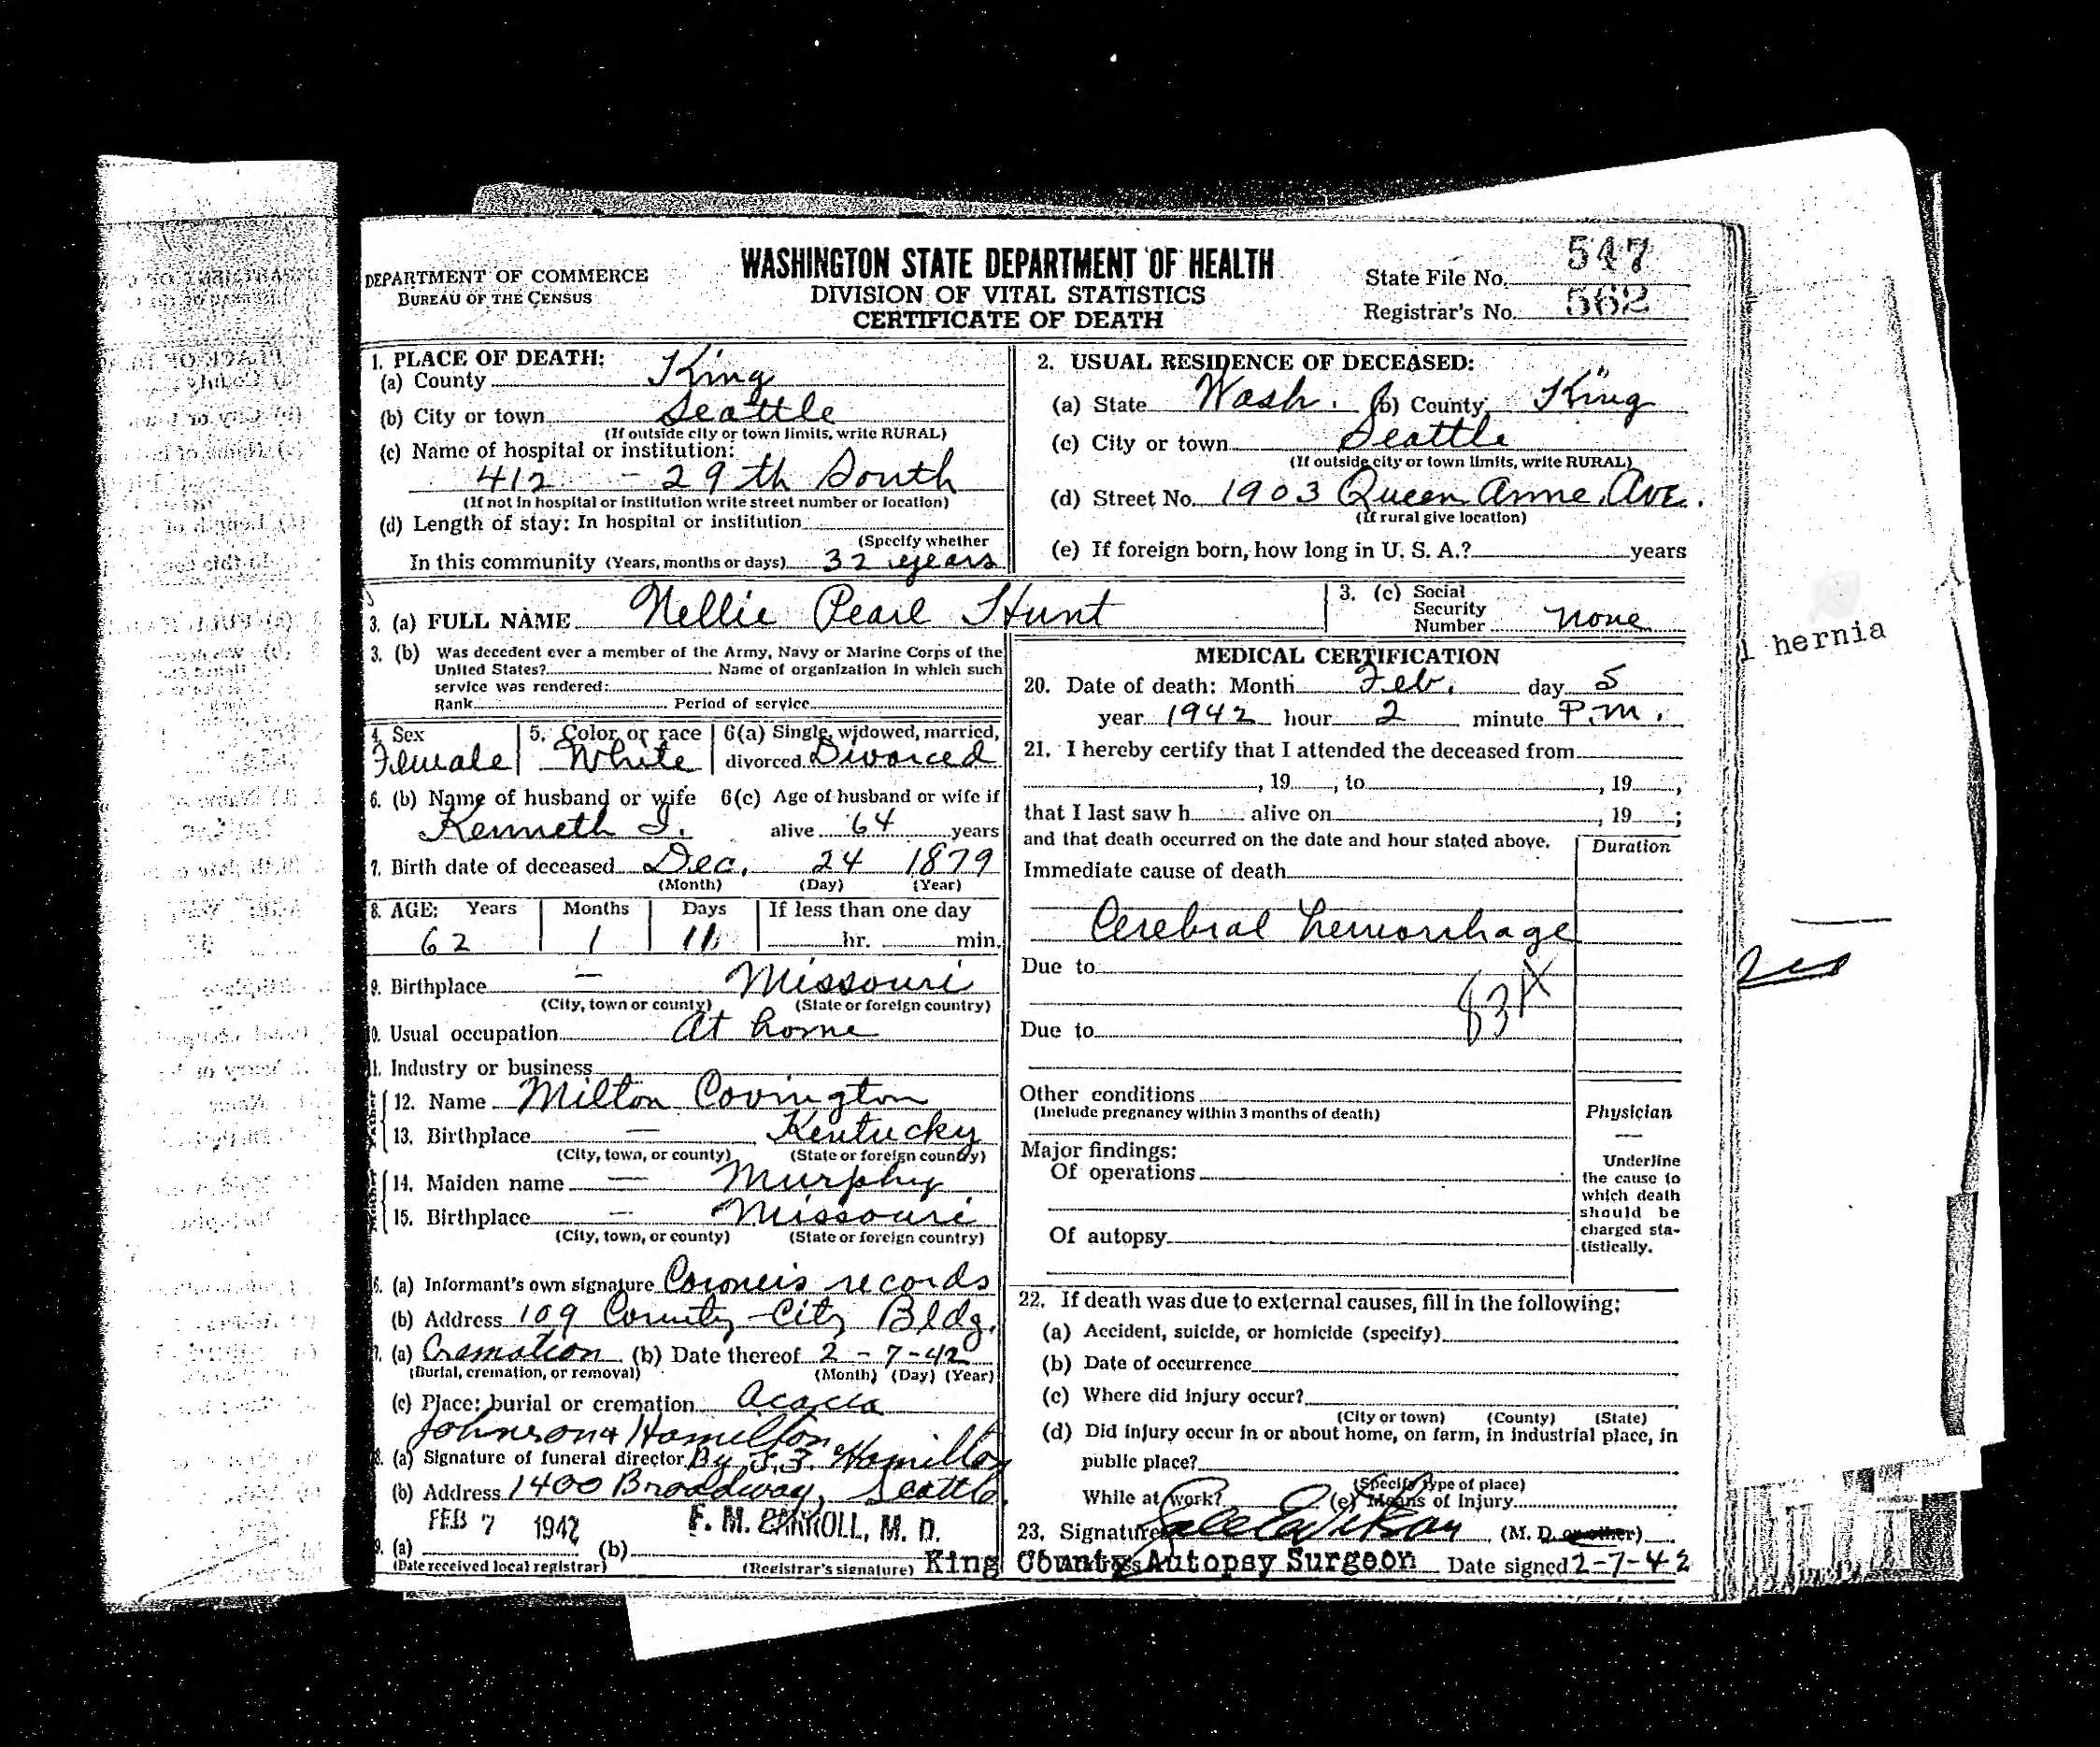 DEPARTMENT OF COMMERCE
BUREAU OF THE CENSUS
WASHINGTON STATE DEPARTMENT OF HEALTH
DIVISION OF VITAL STATISTICS
CERTIFICATE OF DEATH
State File No. 547
Registrar's No. 562
1. PLACE OF DEATH:
(a) County King
(b) City or town Seattle
(If outside city or town limits, write RURAL)
(c) Name of hospital or institution:
412 - 29th South
(If not in hospital or institution write street number or location)
(d) Length of stay: In hospital or institution
(Specify whether
In this community (Years, months or days) 32 years
2. USUAL RESIDENCE OF DECEASED:
(a) State Wash. (b) County King
(c) City or town Seattle
(If outside city or town limits, write RURAL)
(d) Street No. 1903 Queen Anne Ave.
(If rural give location)
(e) If foreign born, how long in U. S. A.? years
3. (a) FULL NAME Nellie Pearl Hunt
3. (c) Social
Security
Number none
3. (b) Was decedent ever a member of the Army, Navy or Marine Corps of the
United States? Name of organization in which such
service was rendered:
Rank Period of service
4. Sex Female
5. Color or race White
6(a) Single, widowed, married,
divorced Divorced
6. (b) Name of husband or wife
Kenneth I.
6(c) Age of husband or wife if
alive 64 years
7. Birth date of deceased Dec. 24 1879
(Month) (Day) (Year)
8. AGE: Years Months Days If less than one day
62 1 11 hr. min.
9. Birthplace — Missouri
(City, town or county) (State or foreign country)
0. Usual occupation At home
1. Industry or business
Father
12. Name Milton Covington
13. Birthplace — Kentucky
(City, town, or county) (State or foreign country)
Mother
14. Maiden name — Murphy
15. Birthplace — Missouri
(City, town, or county) (State or foreign country)
6. (a) Informant's own signature Coroner's records
(b) Address 109 County-City Bldg.
7. (a) Cremation (b) Date thereof 2-7-42
(Burial, cremation, or removal) (Month) (Day) (Year)
(c) Place: burial or cremation Acacia
Johnson & Hamilton
8. (a) Signature of funeral director By F.F. Hamilton
(b) Address 1400 Broadway, Seattle
FEB 7 1942 F. M. CARROLL, M. D.
9. (a) (b)
(Date received local registrar) (Registrar's signature)
MEDICAL CERTIFICATION
20. Date of death: Month Feb. day 5
year 1942 hour 2 minute P.M.
21. I hereby certify that I attended the deceased from
, 19 , to , 19 ,
that I last saw h alive on , 19 ;
and that death occurred on the date and hour stated above.
Duration
Immediate cause of death
Cerebral hemorrhage
Due to
83A
Due to
Other conditions
(Include pregnancy within 3 months of death)
Major findings:
Of operations
Of autopsy
Physician
—
Underline
the cause to
which death
should be
charged sta-
tistically.
22. If death was due to external causes, fill in the following:
(a) Accident, suicide, or homicide (specify)
(b) Date of occurrence
(c) Where did injury occur?
(City or town) (County) (State)
(d) Did injury occur in or about home, on farm, in industrial place, in
public place?
(Specify type of place)
While at work? (e) Means of Injury
23. Signature (M. D. or other)
King County Autopsy Surgeon Date signed 2-7-42
hernia